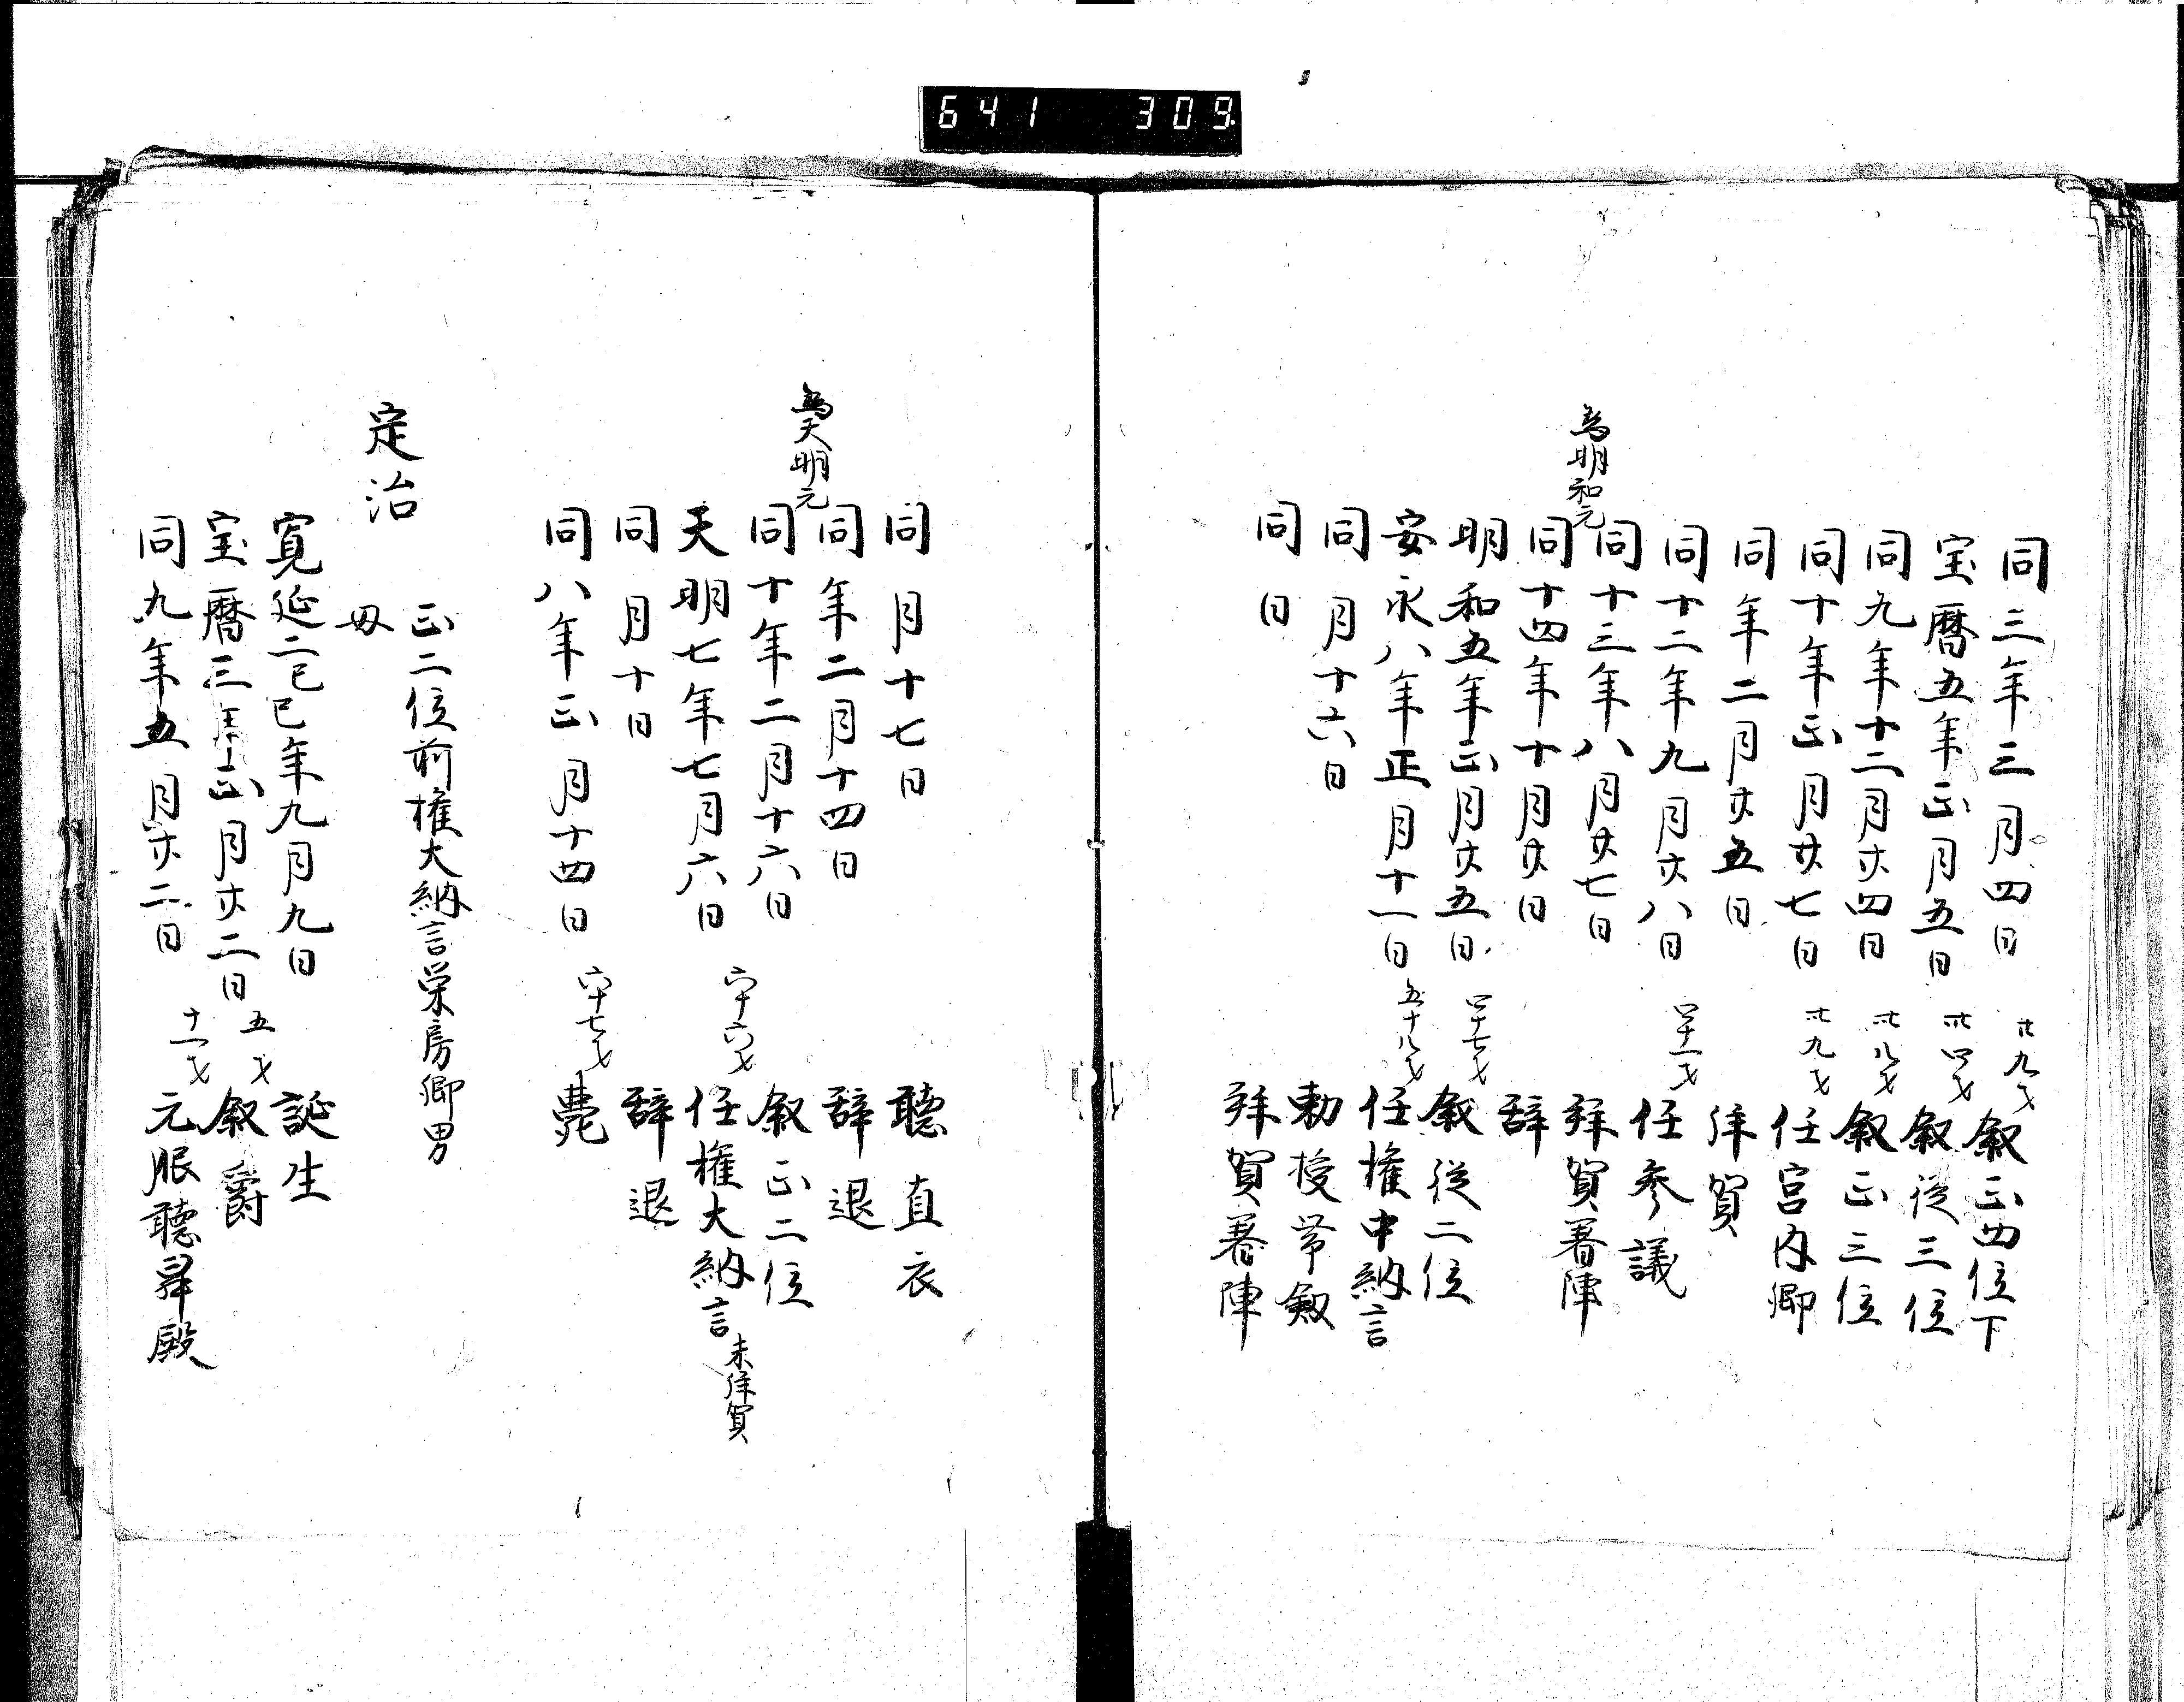 641 309
同三年三月四日 廿九才 叙正四位下
宝暦五年正月五日 卅四才 叙従三位
同九年十二月廿四日 卅八才 叙正三位
同十年正月廿七日 卅九才 任宮内卿
同年二月廿五日 拝賀
同十二年九月廿八日 四十一才 任参議
同十三年八月廿七日 拜賀著陣
為明和元
同十四年十月廿日 辞
明和五年正月廿五日 四十七才 叙従二位
安永八年正月十一日 五十八才 任権中納言
同月十六日 勅授帯剱
同日 拜賀著陣
同月十七日 聴直衣
同年二月十四日 辞退
為天明元
同十年二月十六日 叙正二位
天明七年七月六日 六十六才 任権大納言 未拝賀
同月十日 辞退
同八年正月十四日 六十七才 薨
定治
正二位前権大納言栄房卿男
母
寛延二己巳年九月九日 誕生
宝暦三年正月廿二日 五才 叙爵
同九年五月廿二日 十一才 元服聴昇殿